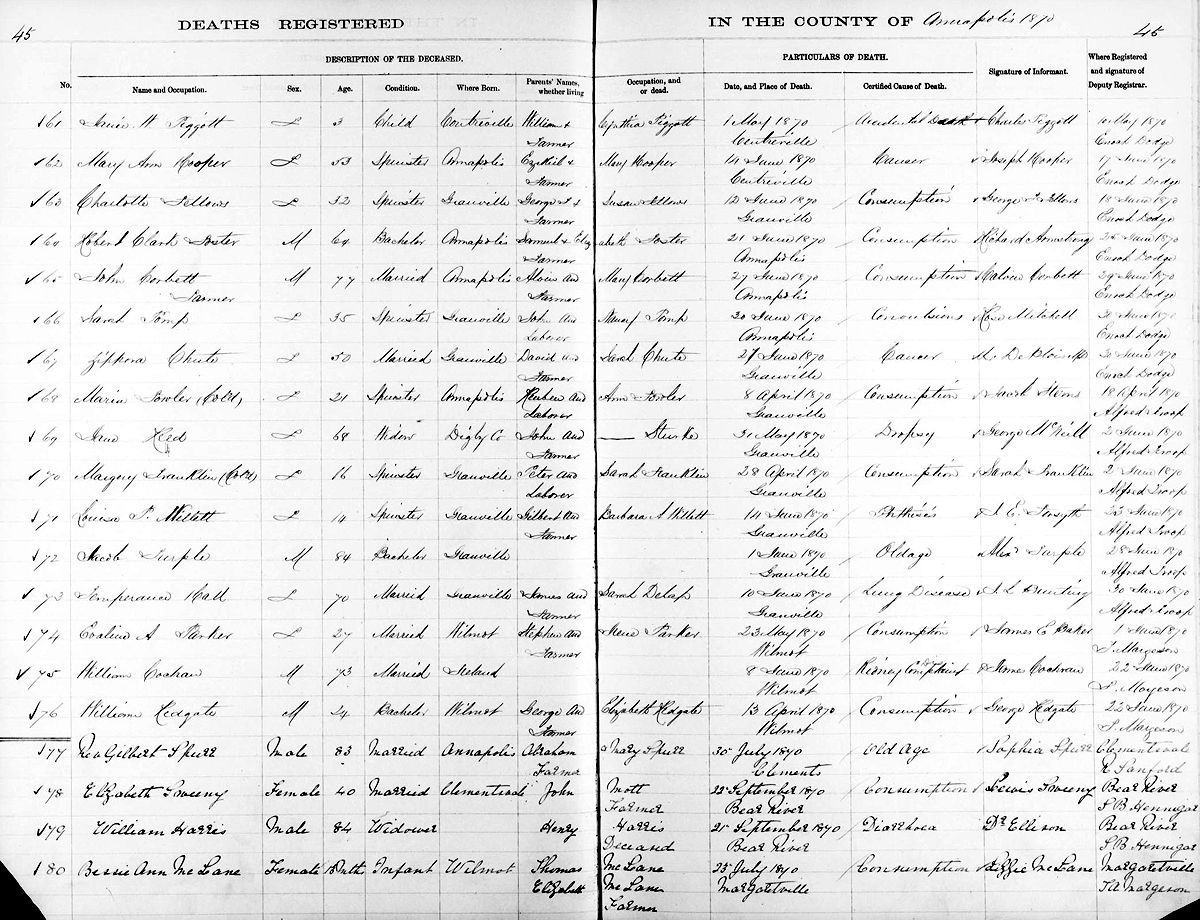 45 DEATHS REGISTERED IN THE COUNTY OF Annapolis 1870 45
DESCRIPTION OF THE DECEASED. PARTICULARS OF DEATH.
No. Name and Occupation. Sex. Age. Condition. Where Born. Parents' Names, whether living Occupation, and or dead. Date, and Place of Death. Certified Cause of Death. Signature of Informant. Where Registered and signature of Deputy Registrar.
61 Piggott F 3 Child Centreville William & Cynthia Piggott 1 May 1870 Accidental Charles Piggott 10 May 1870
Farmer Centreville Enoch Dodge
62 Mary Ann Hooper F 53 Spinster Annapolis Ezekiel & Mary Hooper 14 June 1870 Cancer Joseph Hooper 17 June 1870
Farmer Centreville Enoch Dodge
63 Charlotte Fellows F 32 Spinster Granville George & Susan Fellows 12 June 1870 Consumption George Fellows 18 June 1870
Farmer Granville Enoch Dodge
64 Robert Clark Foster M 64 Bachelor Annapolis Samuel & Elizabeth Foster 21 June 1870 Consumption Richard Armstrong 25 June 1870
Farmer Annapolis Enoch Dodge
65 John Corbett M 77 Married Annapolis and Mary Corbett 27 June 1870 Consumption Corbett 29 June 1870
Farmer Farmer Annapolis Enoch Dodge
66 Sarah Pomp F 35 Spinster Granville John and Nancy Pomp 20 June 1870 Convulsions Mitchell June 1870
Laborer Annapolis Enoch Dodge
67 Ziphora Chute F 50 Married Granville David and Sarah Chute 27 June 1870 Cancer June 1870
Farmer Granville Enoch Dodge
68 Maria Fowler (Cold) F 21 Spinster Annapolis Reuben and Ann Fowler 8 April 1870 Consumption 18 April 1870
Laborer Granville Alfred Troop
69 Jane F 68 Widow Digby Co John and —— 31 May 1870 Dropsy George McNeill 2 June 1870
Farmer Granville Alfred Troop
70 Margery Franklin (Cold) F 16 Spinster Granville Peter and Sarah Franklin 28 April 1870 Consumption Sarah Franklin 2 June 1870
Laborer Granville Alfred Troop
71 Louisa F 14 Spinster Granville Gilbert and Barbara A Willett 14 June 1870 Forsyth 23 June 1870
Farmer Granville Alfred Troop
72 Jacob Turple M 84 Bachelor Granville 1 June 1870 Oldage Alex Turple 28 June 1870
Granville Alfred Troop
73 Temperance Hall F 70 Married Granville James and Sarah Delap 10 June 1870 Lung Disease 30 June 1870
Farmer Granville Alfred Troop
74 Evaline A Parker F 27 Married Wilmot Stephen and Irene Parker 23 May 1870 Consumption James E Baker 1 June 1870
Farmer Wilmot Margeson
75 William Cochran M 73 Married Ireland 8 June 1870 Kidney Complaint Cochran 22 June 1870
Wilmot Margeson
76 William Hedgate M 24 Bachelor Wilmot George and Elizabeth Hedgate 13 April 1870 Consumption George Hedgate 23 June 1870
Farmer Wilmot Margeson
77 Rev Gilbert Spurr Male 83 Married Annapolis Abraham Mary Spurr 30 July 1870 Old Age Sophia Spurr Clementsvale
Farmer Clements R Sanford
78 Elizabeth Sweeny Female 40 Married Clementsvale John Mott 22 September 1870 Consumption Lewis Sweeny Bear River
Farmer Bear River S B Hennigar
79 William Harris Male 84 Widower Henry Harris 21 September 1870 Diarrhoea Dr Ellison Bear River
Deceased Bear River S B Hennigar
80 Bessie Ann McLane Female Birth Infant Wilmot Thomas McLane 23 July 1870 Consumption Lizzie McLane Margaretville
Elizabeth McLane Margaretville Margeson
Farmer